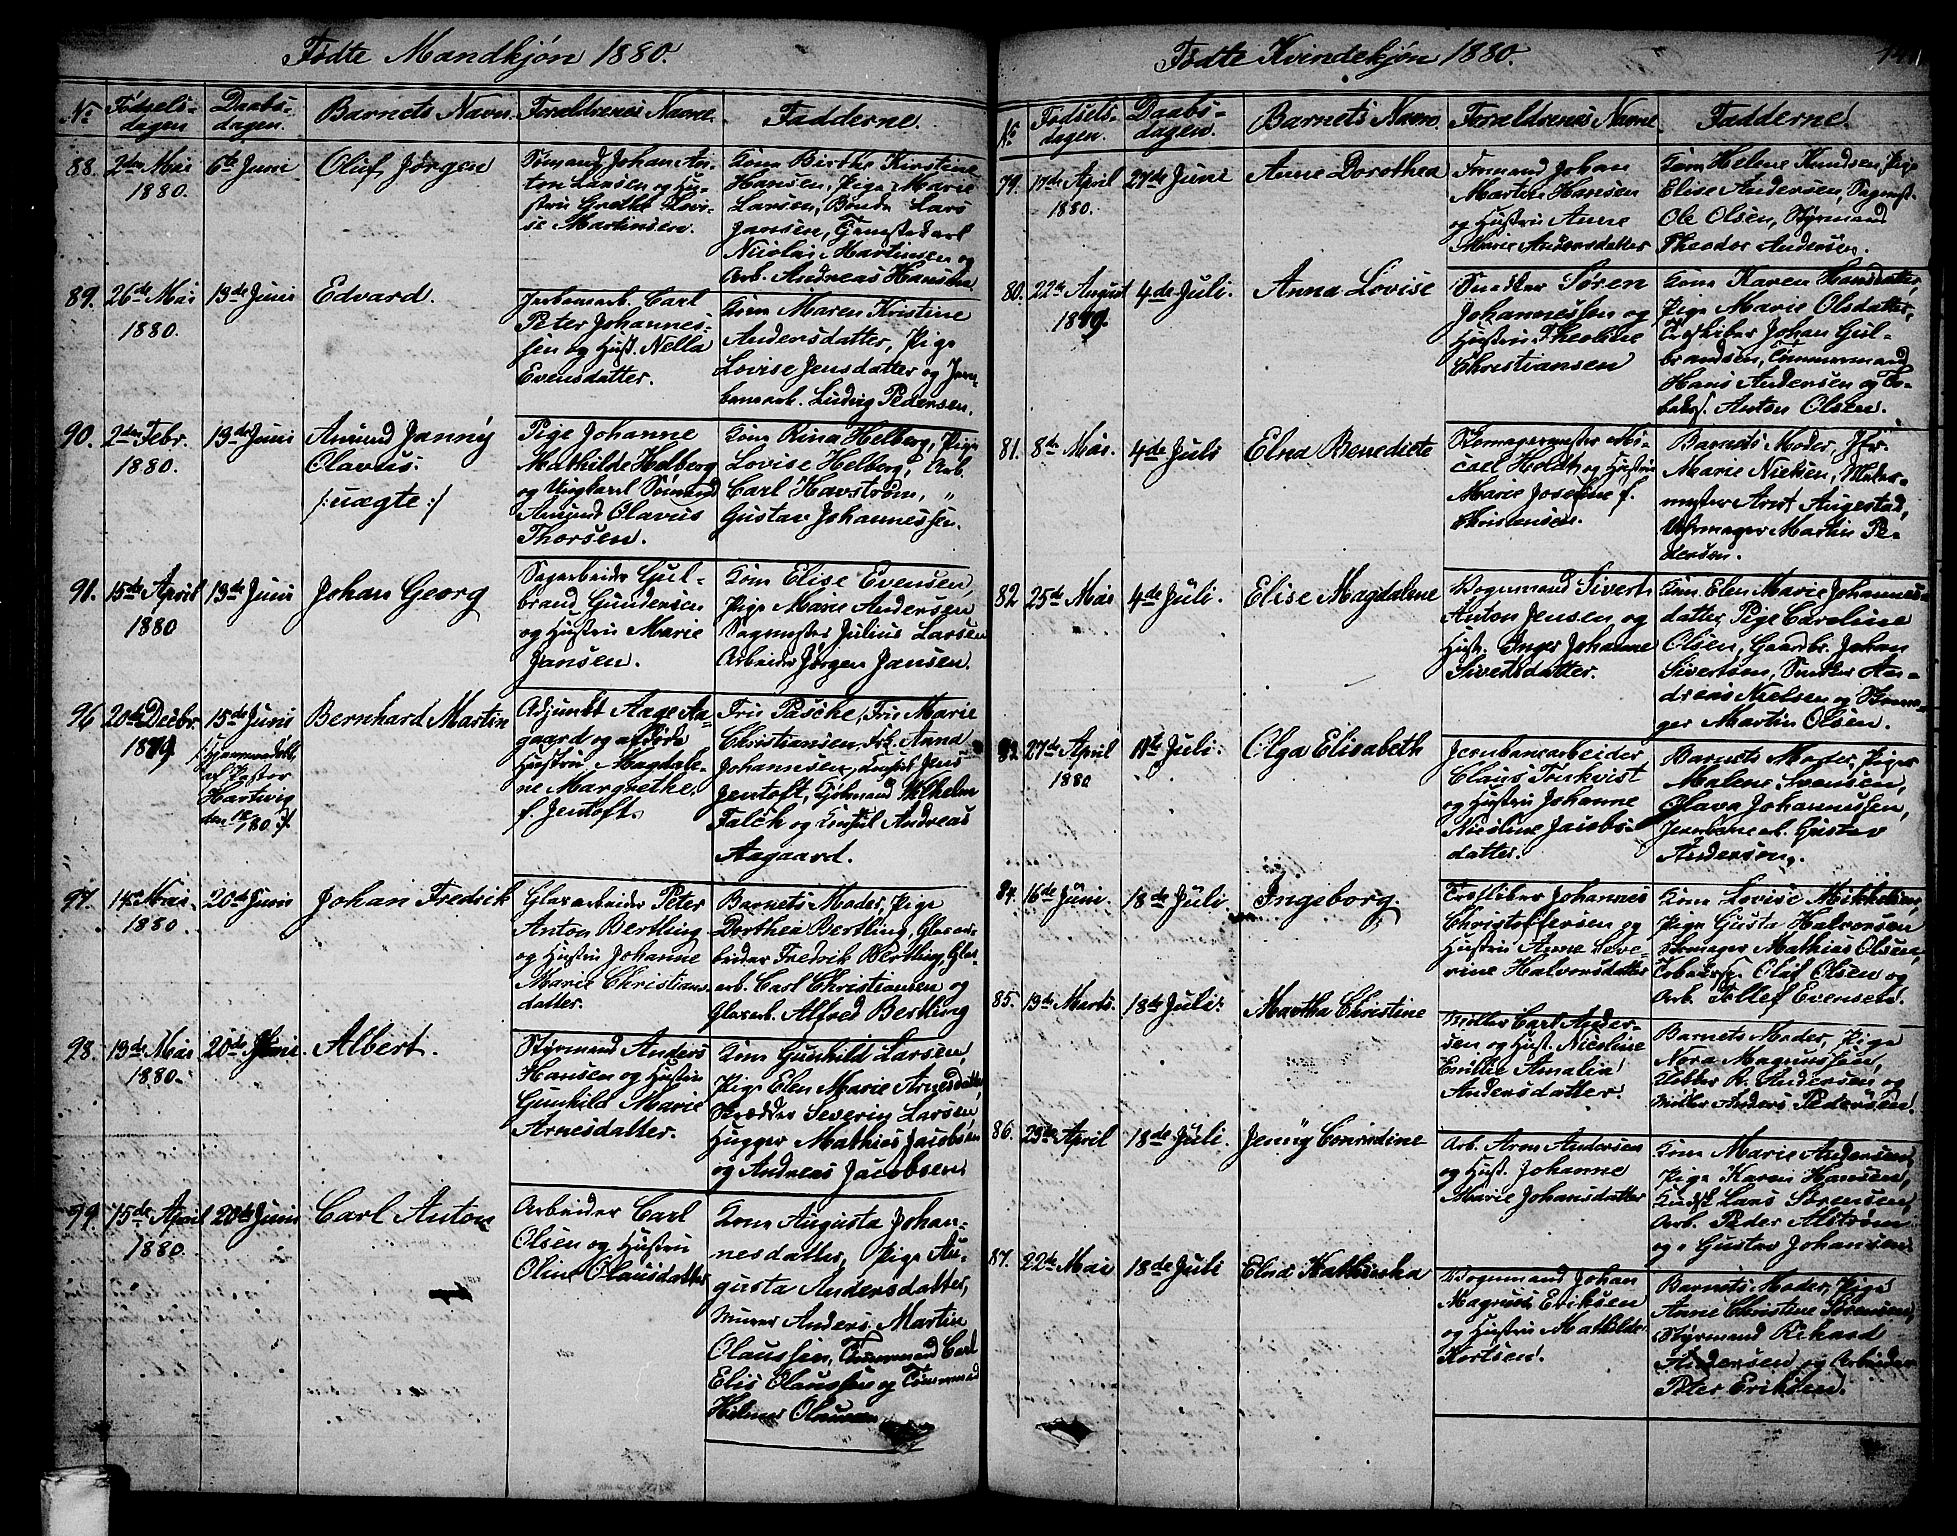 Fødte Mandkjøn 1880.
No Fødselsdagen Daabsdagen. Barnets Navn. Forældrenes Navne. Fadderne.
88. 2den Mai 1880. 6te Juni Oluf Jørgen
Sømand Johan An-
ton Larsen og Hu-
stru Grethe Lovi-
se Martinsen.
Kone Birthe Kirstine
Hansen, Pige Marie
Larsen, Bonde Lars
Jansen,
Nicolai Martinsen og
Arb. Andreas Hansen
89. 26de Mai 1880. 13de Juni Edvard.
Jerbanearb. Carl
Peter Johannes-
sen og Hust. Nella
Evensdatter.
Kone Maren Kristine
Andersdatter, Pige
Lovise Jensdatter og Jern-
banearb. Ludvig Pedersen.
90. 2den Febr. 1880. 13de Juni Amund Janny
Olavus.
/: uægte :/
Pige Johanne
Mathilde Helberg
og Ungkarl Sømand
Amund Olavus
Thorsen.
Kone Rina Helberg, Pige
Lovise Helberg, Arb.
Carl Havstrøm, "
Gustav Johannessen.
91. 15de April 1880 13de Juni Johan Georg
Sagarbeider Gul-
brand Gundersen
og Hustru Marie
Jansen.
Kone Elise Evensen,
Pige Marie Andersen
Sagmester Julius Larsen
Arbeider Jørgen Jansen.
96 20de Decbr. 1879 15de Juni Bernhard Martin
/: Hjemmedøbt
af Pastor
Hartvig
den 80 :/.
Adjunkt Aage Aa-
gaard og afdøde
Hustru Magdale-
ne Margrethe,
f. Jentoft.
Fru Pasche, Fru Marie
Christiansen, Frk. Anna
Johannsen, Konsul Jens
Jentoft, Kjøbmand Vilhelm
Falch og Konsul Andreas
Aagaard.
97. 14de Mai 1880. 20de Juni Johan Fredrik
Glasarbeider Peter
Anton Bertling
og Hustru Johanne
Marie Christians-
datter.
Barnets Moder, Pige
Dorthea Bertling, Glasar-
beider Fredrik Bertling, Glas-
arb. Carl Christiansen og
Glasarb. Alfred Bertling
98. 13de Mai 1880. 20de Juni Albert.
Styrmand Anders
Hansen og Hustru
Gunhild Marie
Arnesdatter.
Kone Gunhild Larsen,
Pige Elen Marie Arnesdatter,
Skrædder Severin Larsen,
Hugger Mathias Jacobsen
og Andreas Jacobsen
99. 15de April 1880. 20de Juni Carl Anton
Arbeider Carl
Olsen og Hustru
Oline Olausdatter
Kone Augusta Johan-
nesdatter, Pige Au-
gusta Andersdatter,
Murer Anders Martin
Olaussen, Tømmermand Carl
Elis Olaussen og Tømmermand
Hilmar Olaussen
Fødte Kvindekjøn 1880.
No Fødselsdagen. Daabsdagen. Barnets Navn. Forældrenes Navne. Fadderne.
79. 17de April 1880. 27de Juni Anne Dorothea
Formand Johan
Martin Hansen
og Hustru Anne
Marie Andersdatter
Kone Helene Knudsen, Pige
Elise Andersen, Sagmest.
Ole Olsen, Styrmand
Theodor Andersen.
80. 22de August 1879. 4de Juli. Anna Lovise
Snedker Søren
Johannessen og
Hustru Theoline
Christiansen
Kone Karen Hansdatter,
Pige Marie Olsdatter,
Træsliber Johan Gul-
brandsen, Tømmermand
Hans Andersen og To-
baksf. Anton Olsen.
81. 8de Mai. 4de Juli Elna Benedicte
Skomagermester
Holdt og Hustru
Marie Josefine f.
Christensen.
Barnets Moder, Jfr.
Marie Nielsen, Maler-
mester Arnt Augestad,
Uhrmager Martin Pe-
dersen.
82 25de Mai 4de Juli. Elise Magdalene
Vognmand Sivert
Anton Jensen og
Hust. Inger Johanne
Sivertsdatter.
Kone Elen Marie Johannes-
datter, Pige Caroline
Olsen, Gaardbr. Johan
Sivertsen, Snedker An-
dreas Nielsen og Skoma-
ger Martin Olsen.
83. 27de April 1880 11te Juli. Olga Elisabeth
Jernbanearbeider
Claus Tonkvist
og Hustru Johanne
Nicoline Jacobs-
datter.
Barnets Moder, Piger
Malene Svensen,
Olava Johannessen,
Jernbanearb. Gustav
Anderson.
84. 16de Juni. 18de Juli Ingeborg.
Træsliber Johannes
Christoffersen og
Hustru Anne Seve-
rine Halvorsdatter
Kone Lovise Mikkelsen,
Pige Gusta Halvorsen
Skomager Mathias Olsen,
Tobaksf. Oluf Olsen og
Arb. Tollef Evensen.
85. 13de Marts. 18de Juli. Martha Christine
Møller Carl Ander-
sen og Hust. Nicoline
Emilie Amalia
Andersdatter.
Barnets Moder, Pige
Nora Magnussen,
R. Andersen og
Møller Anders Pedersen.
86. 23de April 18de Juli. Jenny Conradine
Arb. Aron Andersen
og Hust. Johanne
Marie Johansdatter
Kone Marie Andersen,
Pige Karen Hansen,
Lars Sørensen,
Arb. Peder Alstrøm
og " Gustav Johansen.
87. 22de Mai 18de Juli Elna Kathinka
Vognmand Johan
Magnus Eriksen
og Hustru Mathilde
Kortsen.
Barnets Moder, Pige
Anne Christine Sørensen,
Styrmand Rikard
Andersen og Arbeider
Peter Eriksen.